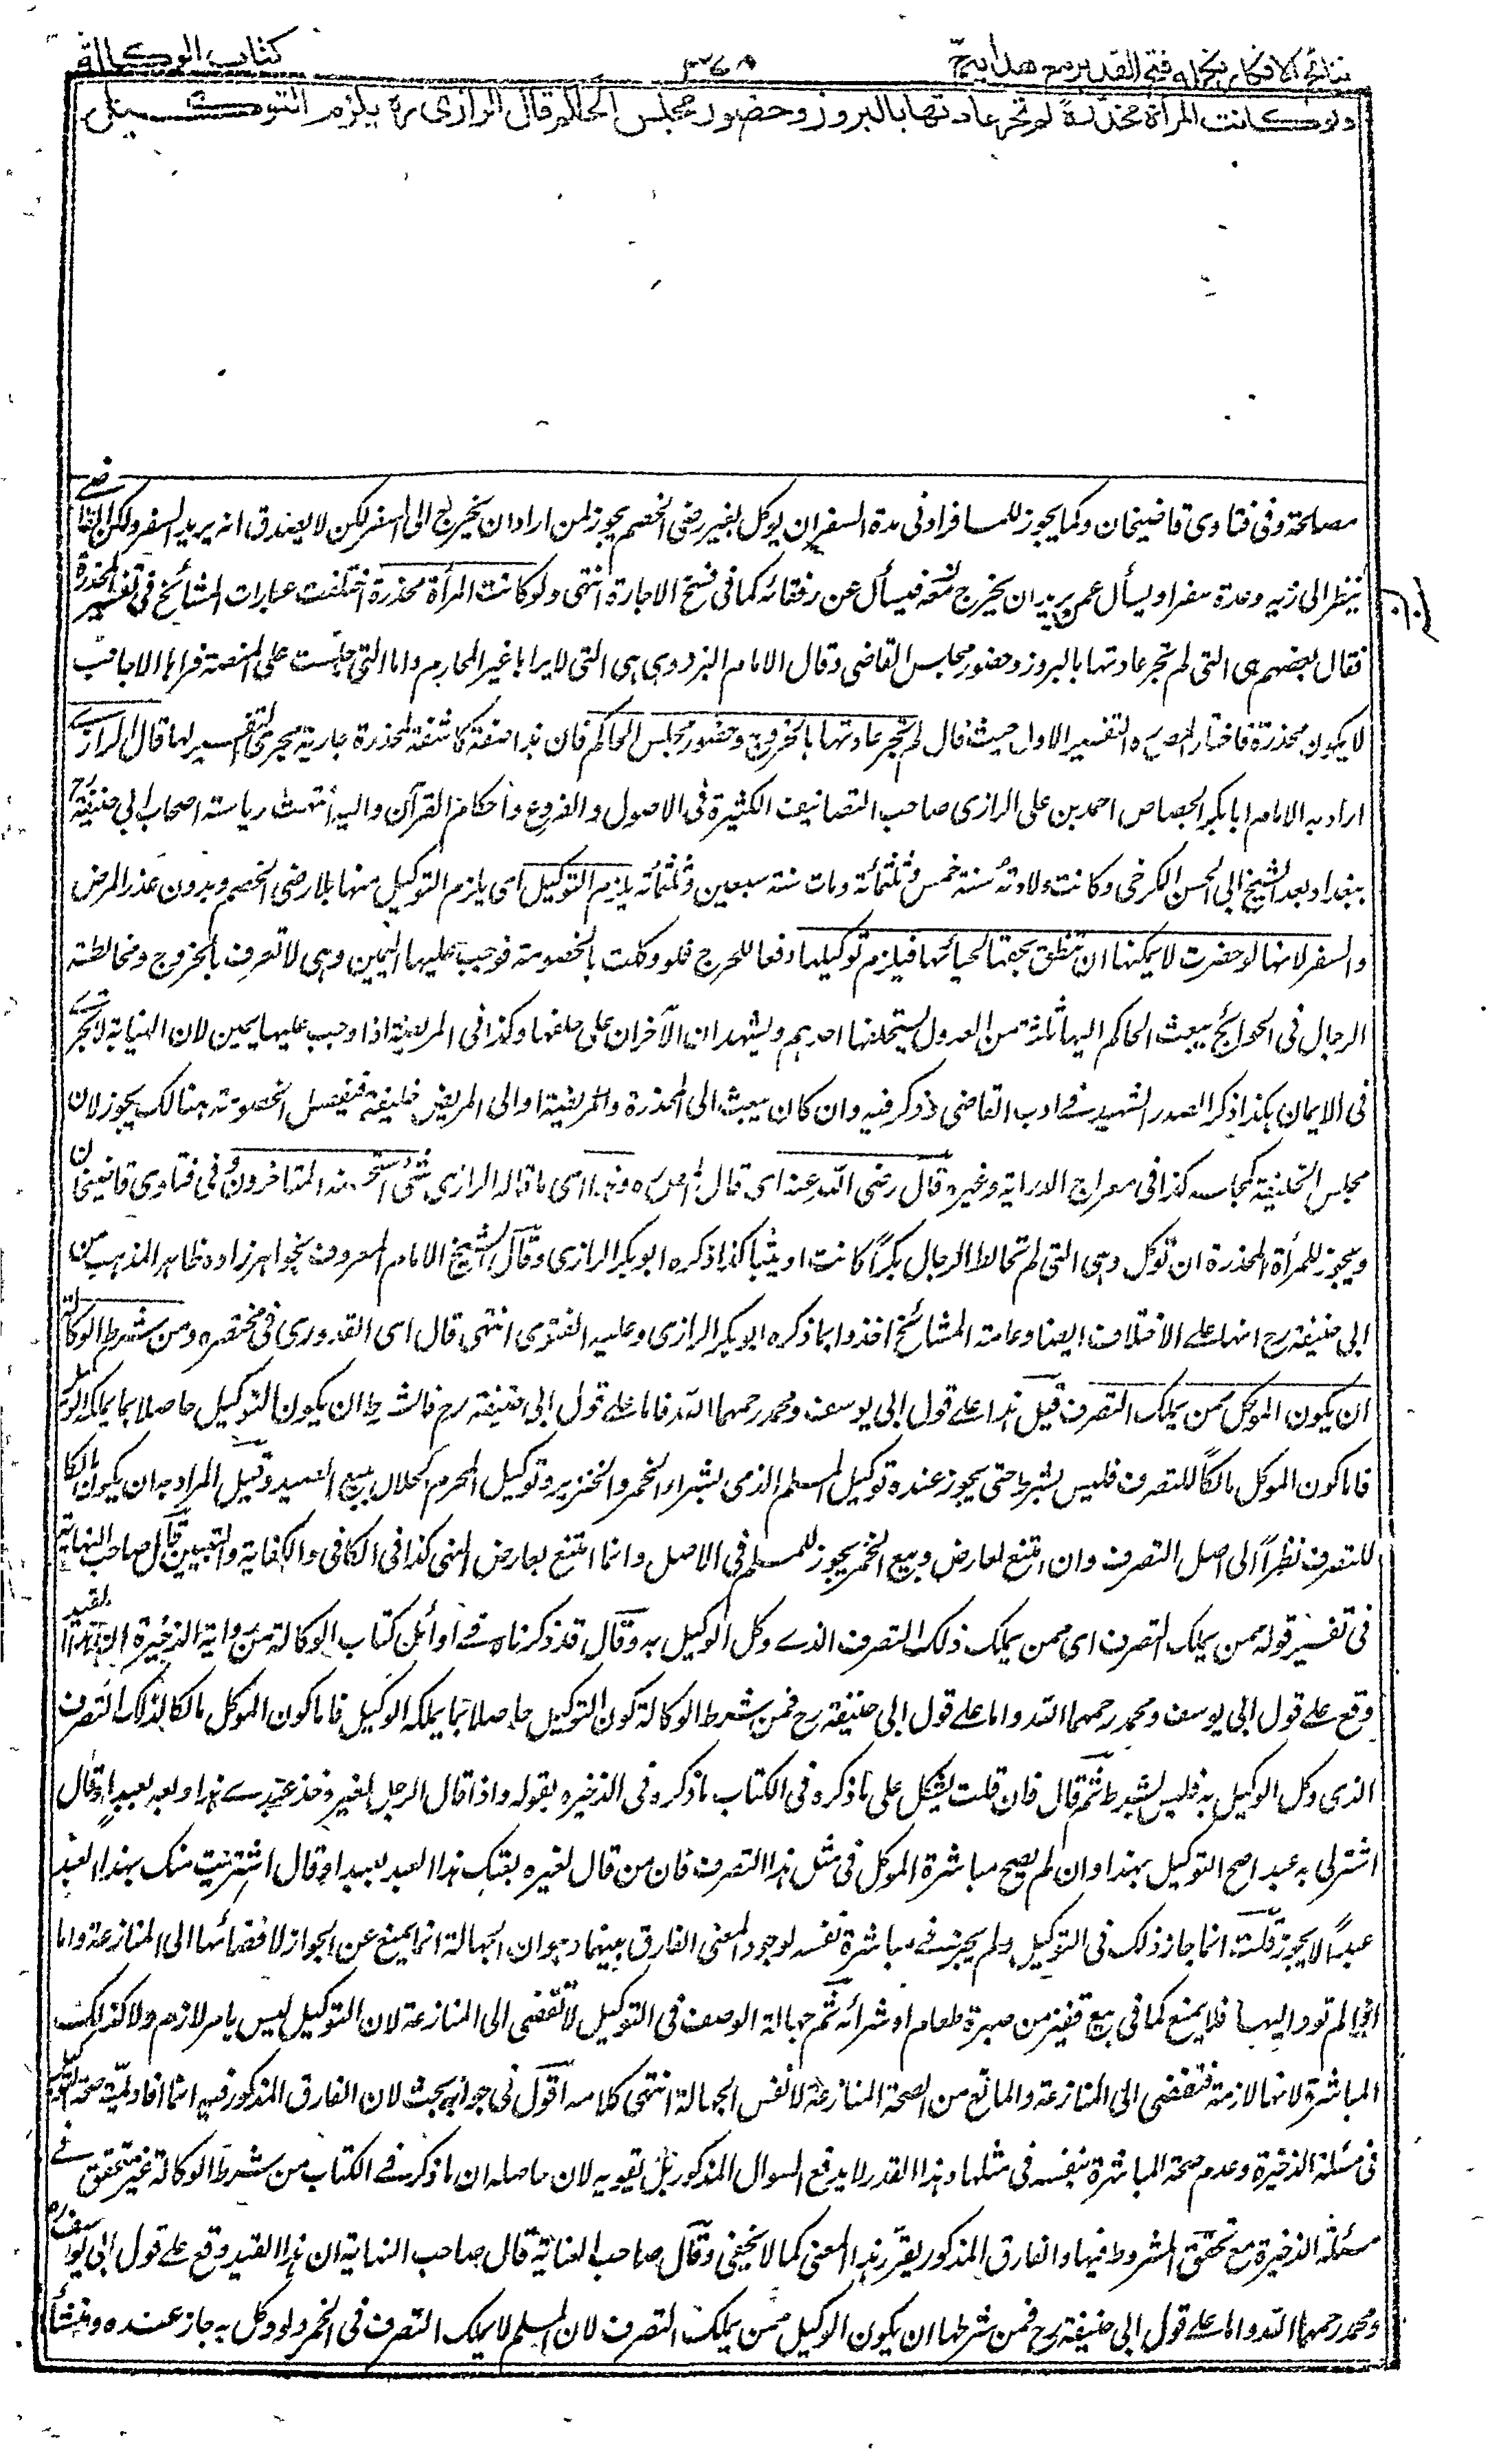 نتائج الافكار تكملة فتح القدير مع هداية ج
۳۶۸
كتاب الوكالة
ولو كانت المرأة مخدرة لم تجر عادتها بالبروز وحضور مجلس الحاكم قال الرازى ره يلزم التوكيل
مصلحة وفى فتاوى قاضيخان وكما يجوز للمسافر اوفى مدة السفر ان يوكل بغير رضى الخصم يجوز لمن اراد ان يخرج الى السفر لكن لا يصدق انه يريد السفر ولكن القاضے
ينظر الى زيه وعدة سفر او يسأل عمن يريد ان يخرج معه فيسأل عن رفقائه كما فى فسخ الاجارة انتهى ولو كانت المرأة مخدرة اختلفت عبارات المشائخ فى تفسير المخدرة
فقال بعضهم هى التى لم تجر عادتها بالبروز وحضور مجلس القاضى وقال الامام البزدوى هى التى لا يراها غير المحارم واما التى جلست على المنصة فراها الاجانب
لا يكون مخدرة فاختار المصره التفسير الاول حيث قال لم تجر عادتها بالخروج وحضور مجلس الحاكم فان هذا صفة كاشفة للمخدرة جارية مجرى التفسير لها قال الرازے
اراد به الامام ابا بكر الجصاص احمد بن على الرازى صاحب التصانيف الكثيرة فى الاصول والفروع واحكام القرآن واليه انتهت رياسة اصحاب ابى حنيفة رح
ببغداد بعد الشيخ ابى الحسن الكرخى وكانت ولادته سنة خمس وثلثمائة ومات سنة سبعين وثلثمائة يلزم التوكيل اى يلزم التوكيل منها بلا رضى الخصم وبدون عذر المرض
والسفر لانها لو حضرت لا يمكنها ان تنطق بحقها لحيائها فيلزم توكيلها دفعا للحرج فلو وكلت بالخصومة فوجبت عليها اليمين وهى لا تعرف بالخروج ومخالطة
الرجال فى الحوائج يبعث الحاكم اليها ثلثة من العدول يستحلفها احدهم ويشهد ان الآخران على حلفها وكذا فى المريضة اذا وجب عليها يمين لان النيابة لا تجرے
فى الايمان هكذا ذكر الصدر الشهيد فے ادب القاضى وذكر فيه وان كان يبعث الى المخدرة والمريضة او الى المريض خليفة فيفصل الخصومة هنالك يجوز لان
مجلس الخليفة كمجلسه كذا فى معراج الدراية وغيره قال رضى الله عنه اى قال المصره وهذا اى ما قاله الرازى شئ استحسنه المتاخرون وفى فتاوى قاضيخان
ويجوز للمرأة المخدرة ان توكل وهى التى لم تخالط الرجال بكراً كانت او ثيبا كذا ذكره ابو بكر الرازى وقال الشيخ الامام المعروف بخواهرزاده ظاهر المذهب من
ابى حنيفة رح انها على الاختلاف ايضا وعامة المشائخ اخذوا بما ذكره ابو بكر الرازى وعليه الفتوى انتهى قال اى القدورى فى مختصره ومن شرط الوكالة
ان يكون الموكل ممن يملك التصرف قيل هذا على قول ابى يوسف ومحمد رحمهما الله فاما على قول ابى حنيفة رح فالشرط ان يكون التوكيل حاصلا بما يملكه الوكيل
فاما كون الموكل مالكاً للتصرف فليس بشرط حتى يجوز عنده توكيل المسلم الذمى بشراء الخمر والخنزير وتوكيل المحرم الحلال ببيع الصيد وقيل المراد به ان يكون مالكا
للتصرف نظراً الى اصل التصرف وان امتنع لعارض وبيع الخمر يجوز للمسلم فى الاصل وانما امتنع بعارض النهى كذا فى الكافى والكفاية والتبيين قال صاحب النهاية
فى تفسير قوله ممن يملك التصرف اى ممن يملك ذلك التصرف الذے وكل الوكيل به وقال قد ذكرناه فے اوائل كتاب الوكالة من رواية الذخيرة ان هذا القيد
وقع على قول ابى يوسف ومحمد رحمهما الله واما على قول ابى حنيفة رح فمن شرط الوكالة كون التوكيل حاصلا بما يملكه الوكيل فاما كون الموكل مالكا لذلك التصرف
الذى وكل الوكيل به فليس بشرط ثم قال فان قلت يشكل على ما ذكره فى الكتاب ما ذكره فى الذخيرة بقوله واذا قال الرجل لغيره خذ عبدے هذا وبعه بعبد او قال
اشتر لى به عبدا صح التوكيل بهذا وان لم يصح مباشرة الموكل فى مثل هذا التصرف فان من قال لغيره بعتك هذا العبد بعبد او قال اشتريت منك بهذا العبد
عبداً لا يجوز قلت انما جاز ذلك فى التوكيل ولم يجز فے مباشرة نفسه لوجود المعنى الفارق بينهما وهو ان الجهالة انما يمنع عن الجواز لافضائها الى المنازعة واما
اذا لم تود اليها فلا يمنع كما فى بيع قفيز من صبرة طعام او شرائه ثم جهالة الوصف فى التوكيل لا تفضى الى المنازعة لان التوكيل ليس بامر لازم ولا كذلك
المباشرة لانها لازمة فتفضى الى المنازعة والمانع من الصحة المنازعة لا نفس الجهالة انتهى كلامه اقول فى جوابه بحث لان الفارق المذكور فيه انما افاد لمية صحة التوكيل
فى مسئلة الذخيرة وعدم صحة المباشرة بنفسه فى مثلها وهذا القدر لا يدفع السوال المذكور بل تقويه لان حاصله ان ما ذكر فے الكتاب من شرط الوكالة غير متحقق فے
مسئلة الذخيرة مع تحقق المشروط فيها والفارق المذكور يقرر هذا المعنى كما لا يخفى وقال صاحب العناية قال صاحب النهاية ان هذا القيد وقع على قول ابى يوسف
ومحمد رحمهما الله واما على قول ابى حنيفة رح فمن شرطها ان يكون الوكيل ممن يملك التصرف لان المسلم لا يملك التصرف فى الخمر ولو وكل به جاز عنده ومنشأ